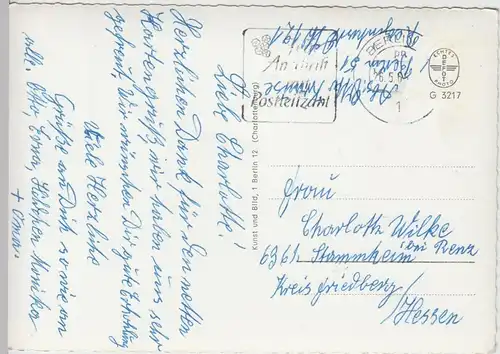 Liebe Charlotte!
Herzlichen Dank für den netten
Kartengruß, wir haben uns sehr
gefreut. Wir wünschen Dir gute Erholung
Viele Herzliche
Grüße an Dich sowie an
alle. Otto, Erna, Monika
+ Omi
Kunst und Bild, 1 Berlin 12 (Charlottenburg)
Berlin 51
BERLIN
Postleitzahl
1
ECHTES
PHOTO
G 3217
Frau
Charlotte Wilke
bei Renz
6361 Stammheim
Kreis Friedberg
/Hessen